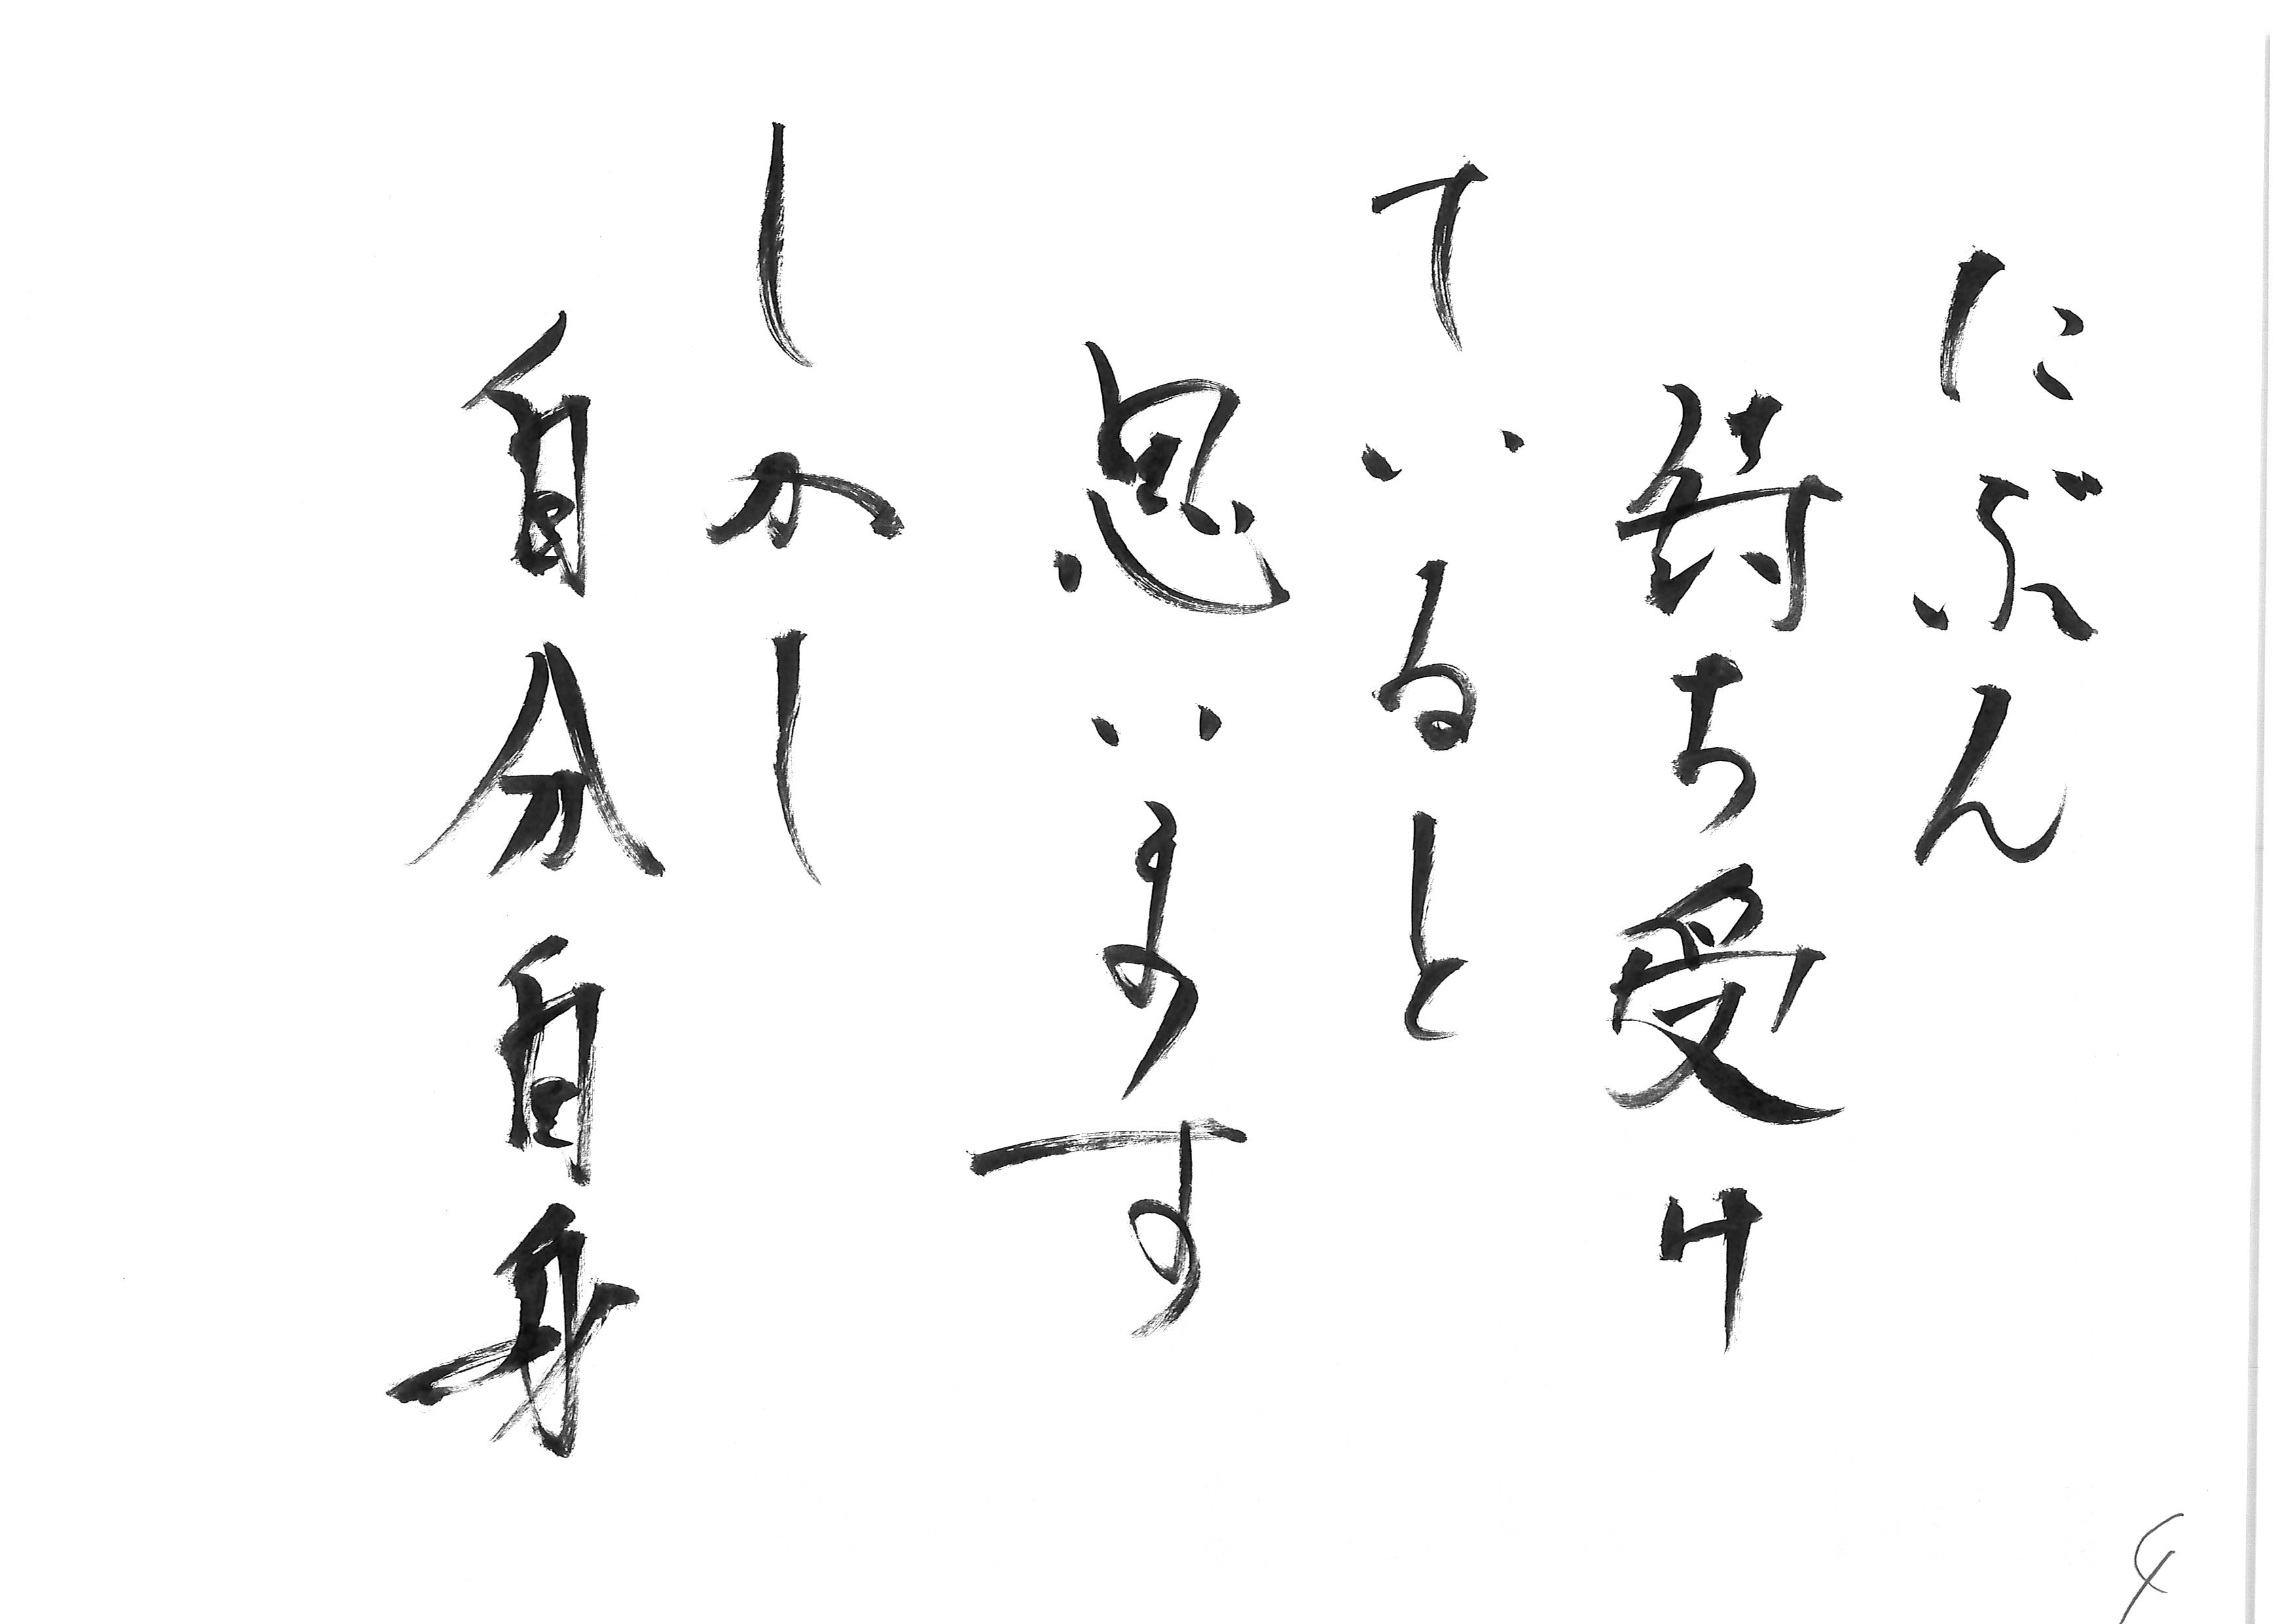 にぶん
待ち受け
ていると
思います
しかし
自分自身
4